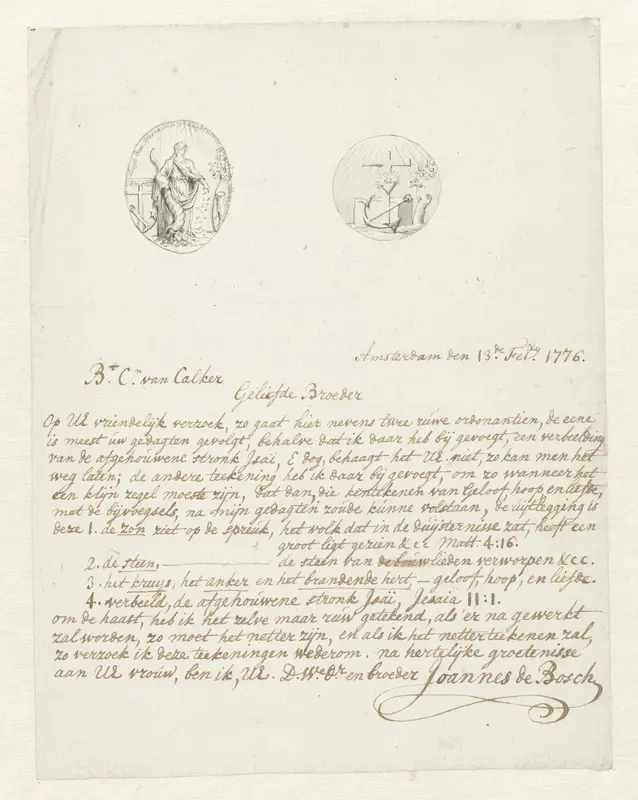 Amsterdam den 13de Febry 1776.
Br. Cn. van Calker
Geliefde Broeder
Op UE vriendelijk verzoek, zo gaat hier nevens twee ruwe ordonantien, de eene
is meest uw gedagten gevolgt, behalve dat ik daar heb bij gevoegt, een verbeelding
van de afgehouwene stronk Jsai, E dog, behaagt het UE niet, zo kan men het
weg laten; de andere teekening heb ik daar bij gevoegt, om zo wanneer het
een klijn zegel moeste zijn, dat dan, die kentekenen van Geloof hoop en liefde,
met de bijvoegsels, na mijn gedagten zoude kunne volstaan, de uijtlegging is
deze 1. de zon ziet op de spreuk, het volk dat in de duijsternisse zat, heeft een
groot ligt gezien &cc Matt: 4:16.
2. de steen, de steen van de bouwlieden verworpen &cc.
3. het kruys, het anker en het brandende hert — geloof, hoop, en liefde.
4. verbeeld, de afgehouwene stronk Jsái, Jesaia 11:1.
om de haast, heb ik het zelve maar rauw getekend, als 'er na gewerkt
zal worden, zo moet het netter zijn, en als ik het netter teekenen zal,
zo verzoek ik deze teekeningen wederom. na hertelijke groetenisse
aan UE vrouw, ben ik, UE. D.We. Dr. en broeder Joannes de Bosch